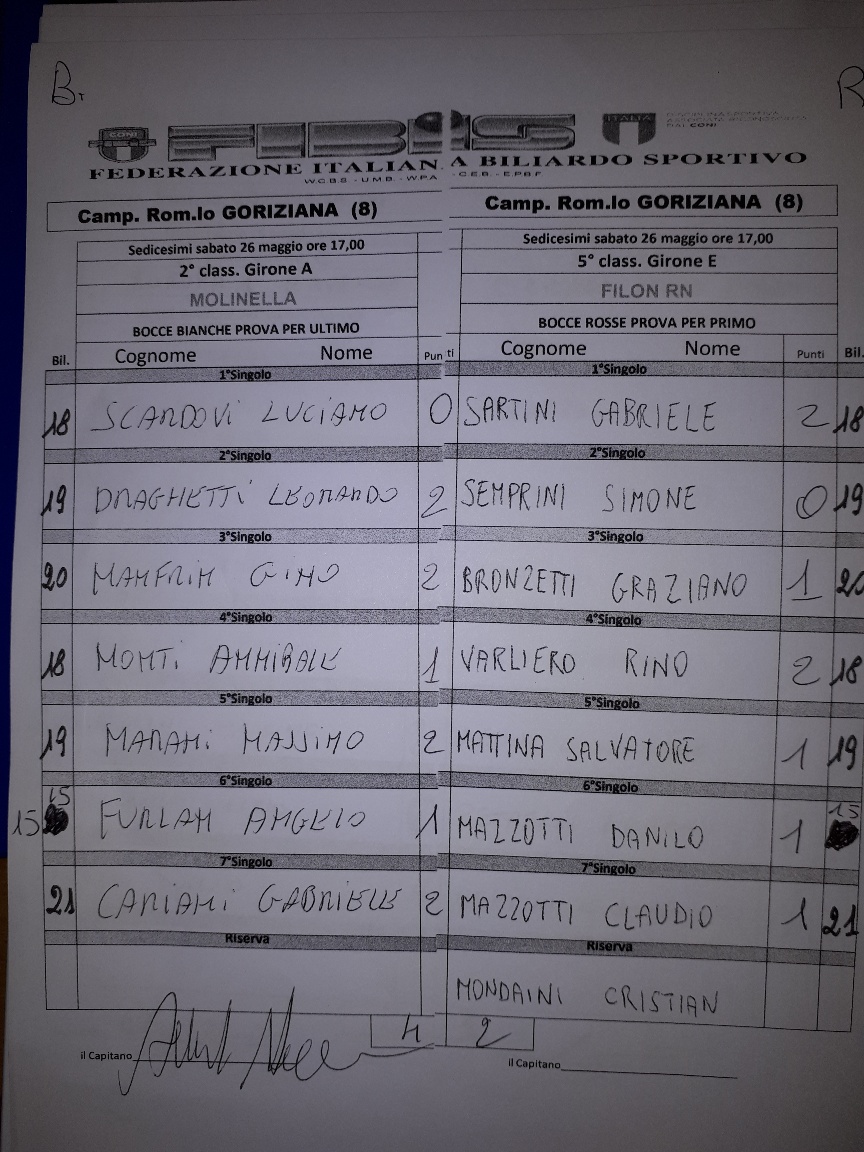 B. R
CONI FIBIS ITALIA
FEDERAZIONE ITALIANA BILIARDO SPORTIVO
W.C.B.S - U.M.B. - W.P.A. - C.E.B. - E.P.B.F.
Camp. Rom.lo GORIZIANA (8) Camp. Rom.lo GORIZIANA (8)
Sedicesimi sabato 26 maggio ore 17,00 Sedicesimi sabato 26 maggio ore 17,00
2° class. Girone A 5° class. Girone E
MOLINELLA FILON RN
BOCCE BIANCHE PROVA PER ULTIMO BOCCE ROSSE PROVA PER PRIMO
Bil. Cognome Nome Punti Cognome Nome Punti Bil.
1°Singolo 1°Singolo
18 SCARDOVI LUCIANO 0 SARTINI GABRIELE 2 18
2°Singolo 2°Singolo
19 DRAGHETTI LEONARDO 2 SEMPRINI SIMONE 0 19
3°Singolo 3°Singolo
20 MANFRIN GINO 2 BRONZETTI GRAZIANO 1 20
4°Singolo 4°Singolo
18 MONTI ANNIBALE 1 VARLIERO RINO 2 18
5°Singolo 5°Singolo
19 MARANI MASSIMO 2 MATTINA SALVATORE 1 19
6°Singolo 6°Singolo
15 15 FURLAN ANGELO 1 MAZZOTTI DANILO 1 15
7°Singolo 7°Singolo
21 CARIANI GABRIELE 2 MAZZOTTI CLAUDIO 1 21
Riserva Riserva
MONDAINI CRISTIAN
4 2
il Capitano il Capitano